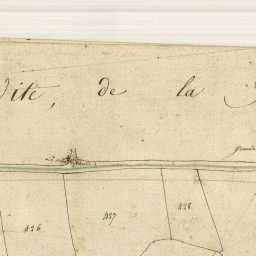 dite, de la
Grande
426
427
428